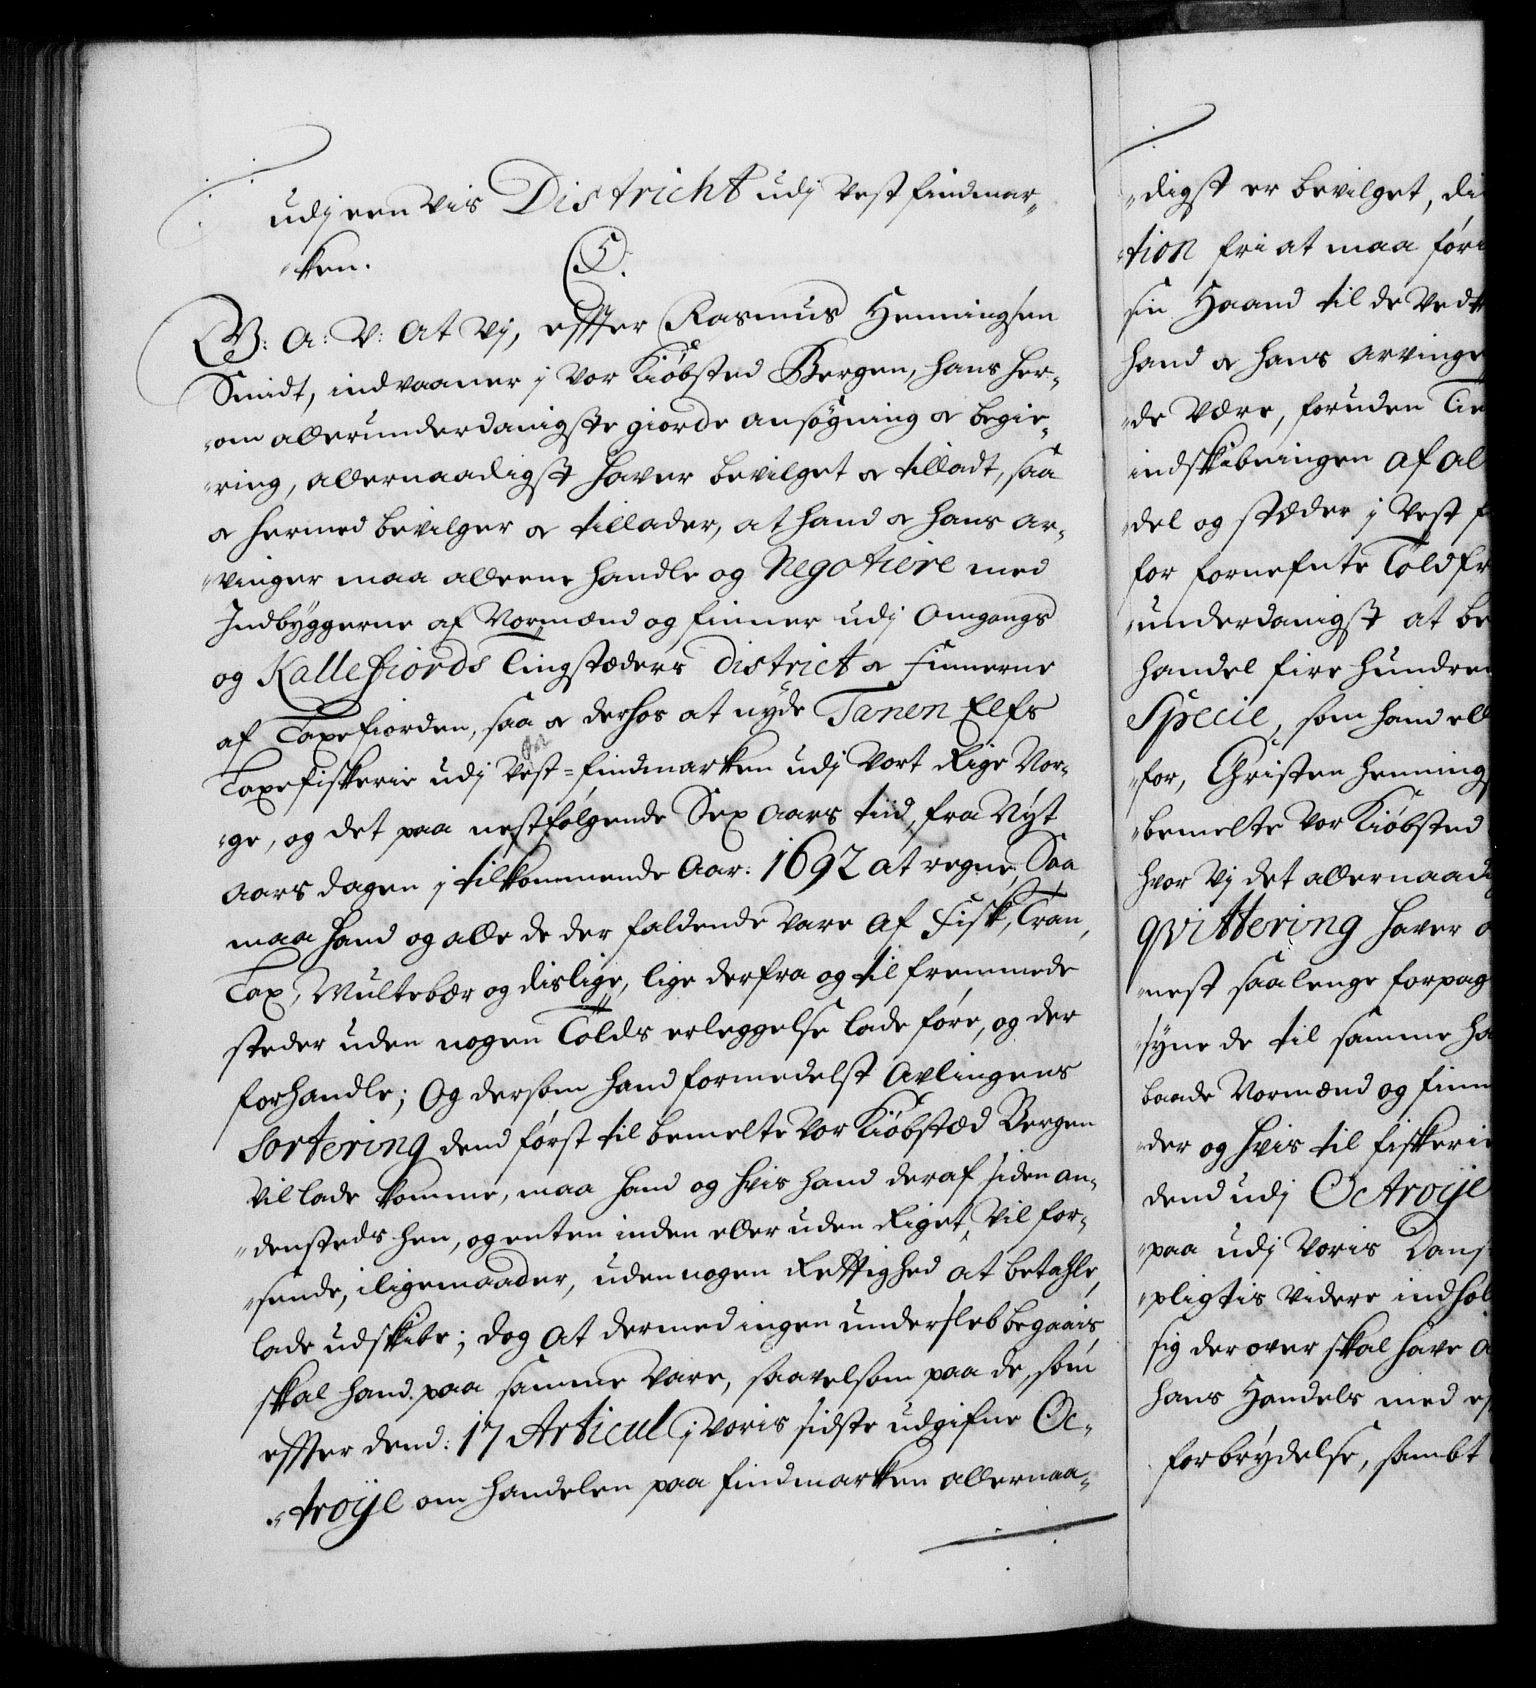 udj een vis Districht udj Vest findmar„
„ken.
C5.
V: A: V: At Vj, effter Rasmus Henningsen
Smidt, indvaaner j Vor Kiöbsted Bergen, hans her„
„om allerunderdanigste giorde ansøgning & begie„
„ring, allernaadigst haver bevilget & tilladt, saa
& hermed bevilger & tillader, at hand & hans ar„
„vinger maa alleene handle og Negotiere med
Indbyggerne af Normænd og finner udj Omgangs
og Kallefiords tingstæders District & finnerne
af Laxefiorden, saa & derhos at nyde Tanen Elfs
Laxefiskerie udj Vest-findmarken udj Vort Rige Nor„
„ge, og det paa nestfølgende Sex Aars tiid, fra Nyt
Aars dagen j tilkommende Aar: 1692 at regne, Saa
maa hand og alle de der faldende vare af Fisk, Tran,
Lax, Multebær og dislige, lige derfra og til fremmede
steder uden nogen Tolds erleggelse lade føre, og der
forhandle; Og dersom hand formedelst Avlingens
Sortering dend først til bemelte Vor Kiöbstæd Bergen
vil lade komme, maa hand og hvis hand deraf siden an„
„densteds hen, og enten inden eller uden Riget, vil for„
„sende, iligemaader, uden nogen Rettighed at betahle,
lade udskibe; dog at dermed ingen undersleb begaais,
skal hand paa samme Vare, saavelsom paa de, som
effter dend: 17 Articul j Voris sidste udgifne Oc„
„troije om Handelen paa findmarken allernaa„
„digst er bevilget, di
„tion fri at maa føri
sin Haand til de Vedt
hand & hans arvinge
„de Være, foruden Tie
indskibningen af al
„del og stæder j Vest f
for fornefnte Toldfr
„underdanigst at be
handel fire hundre
Specie, som hand ell
„for, Christen Henning
„bemelte Vor Kiöbsted
hvor Vj det allernaad
qvittering haver
„nest saalenge forpag
„syne de til samme ha
baade Normænd og finn
„der og hvis til fiskeri
dend udj Octroije
„paa udj Voris Dans
„pligtis videre indhol
sig der over skal have
hans Handels med
forbrydelse, sambt